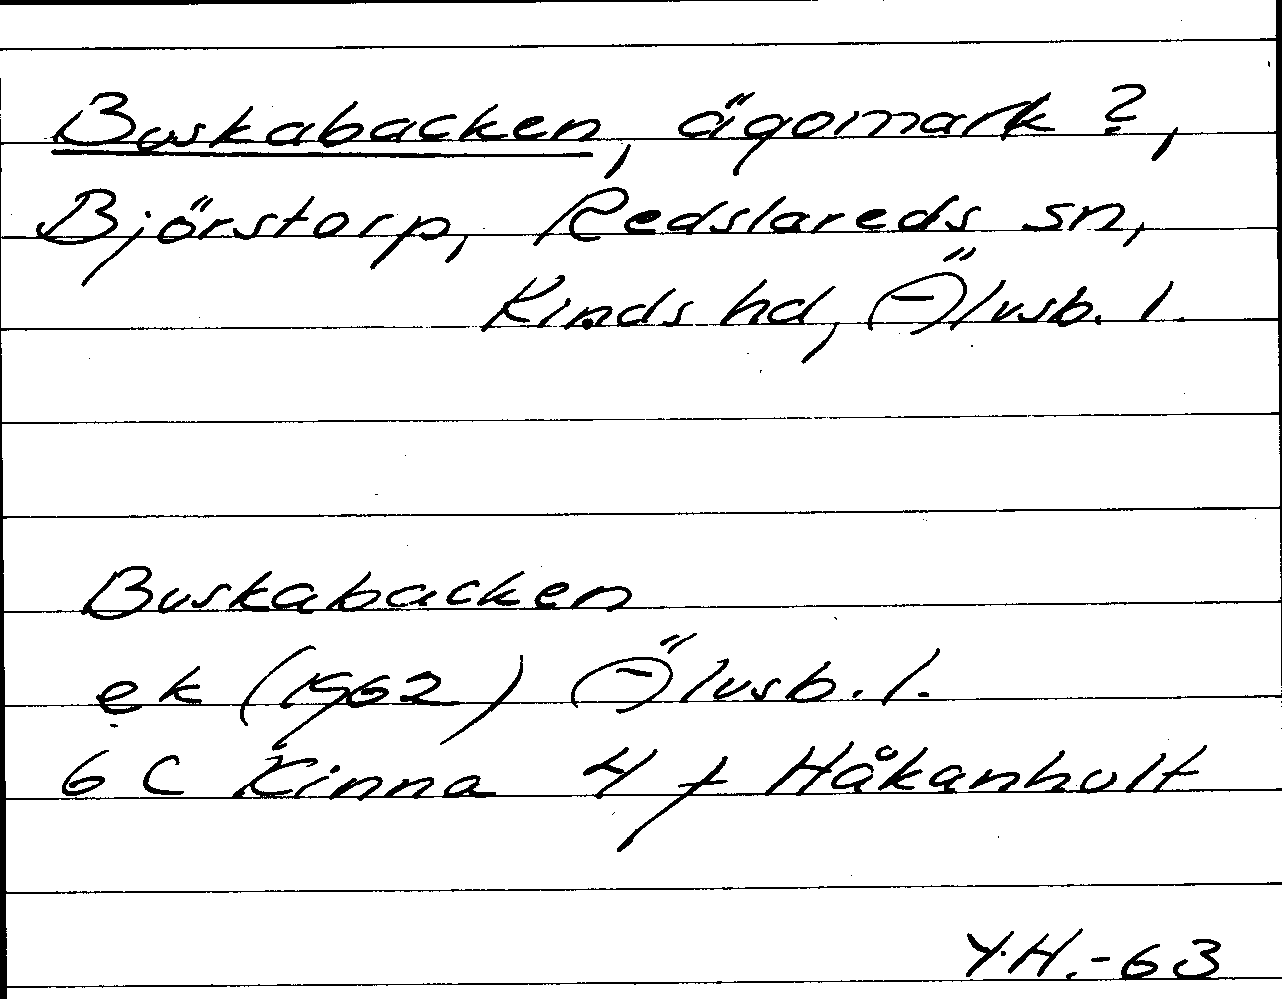 Buskabacken, ägomark?,
Björstorp, Redslareds sn,
Kinds hd, Älvsb. l.
Buskabacken
ek (1962) Älvsb. l.
6 C Kinna 4 f Håkanhult
Y.H.-63